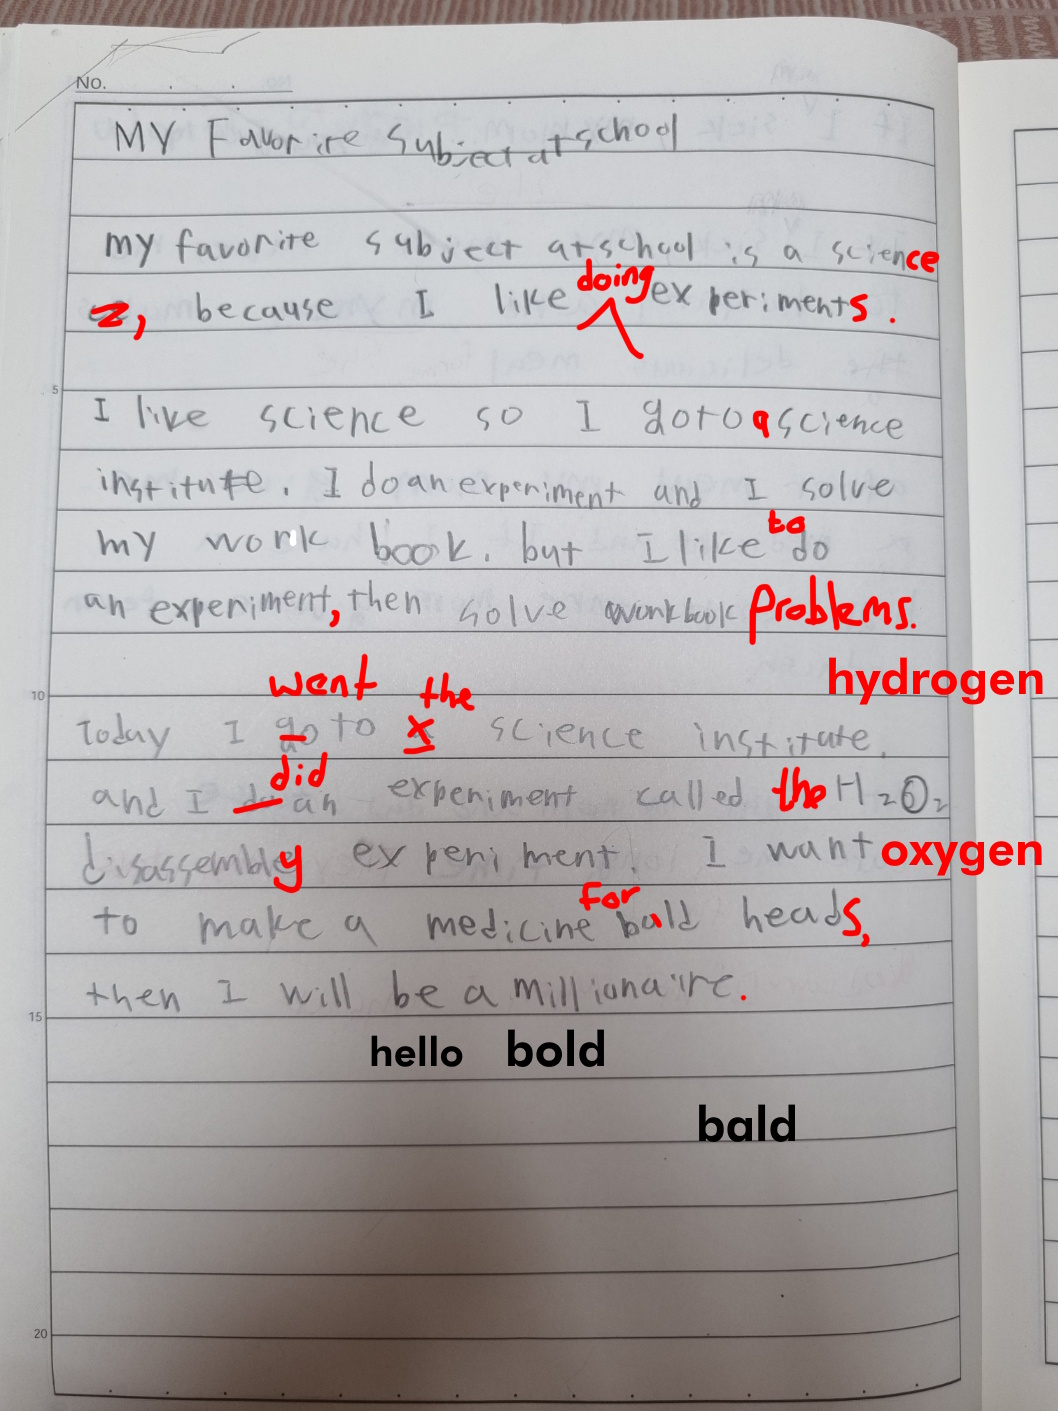 No.
MY Favorite Subject at school
my favorite subject at school is a science
doing
, because I like experiments.
5
I like science so I go to a science
institute. I do an experiment and I solve
to
my work book. but I like do
an experiment, then solve workbook problems.
hydrogen
went the
10
Today I go to x science institute.
did
and I do an experiment called the H₂O₂
disassembly experiment. I want oxygen
for
to make a medicine bald heads,
then I will be a millionaire.
15
hello bold
bald
20